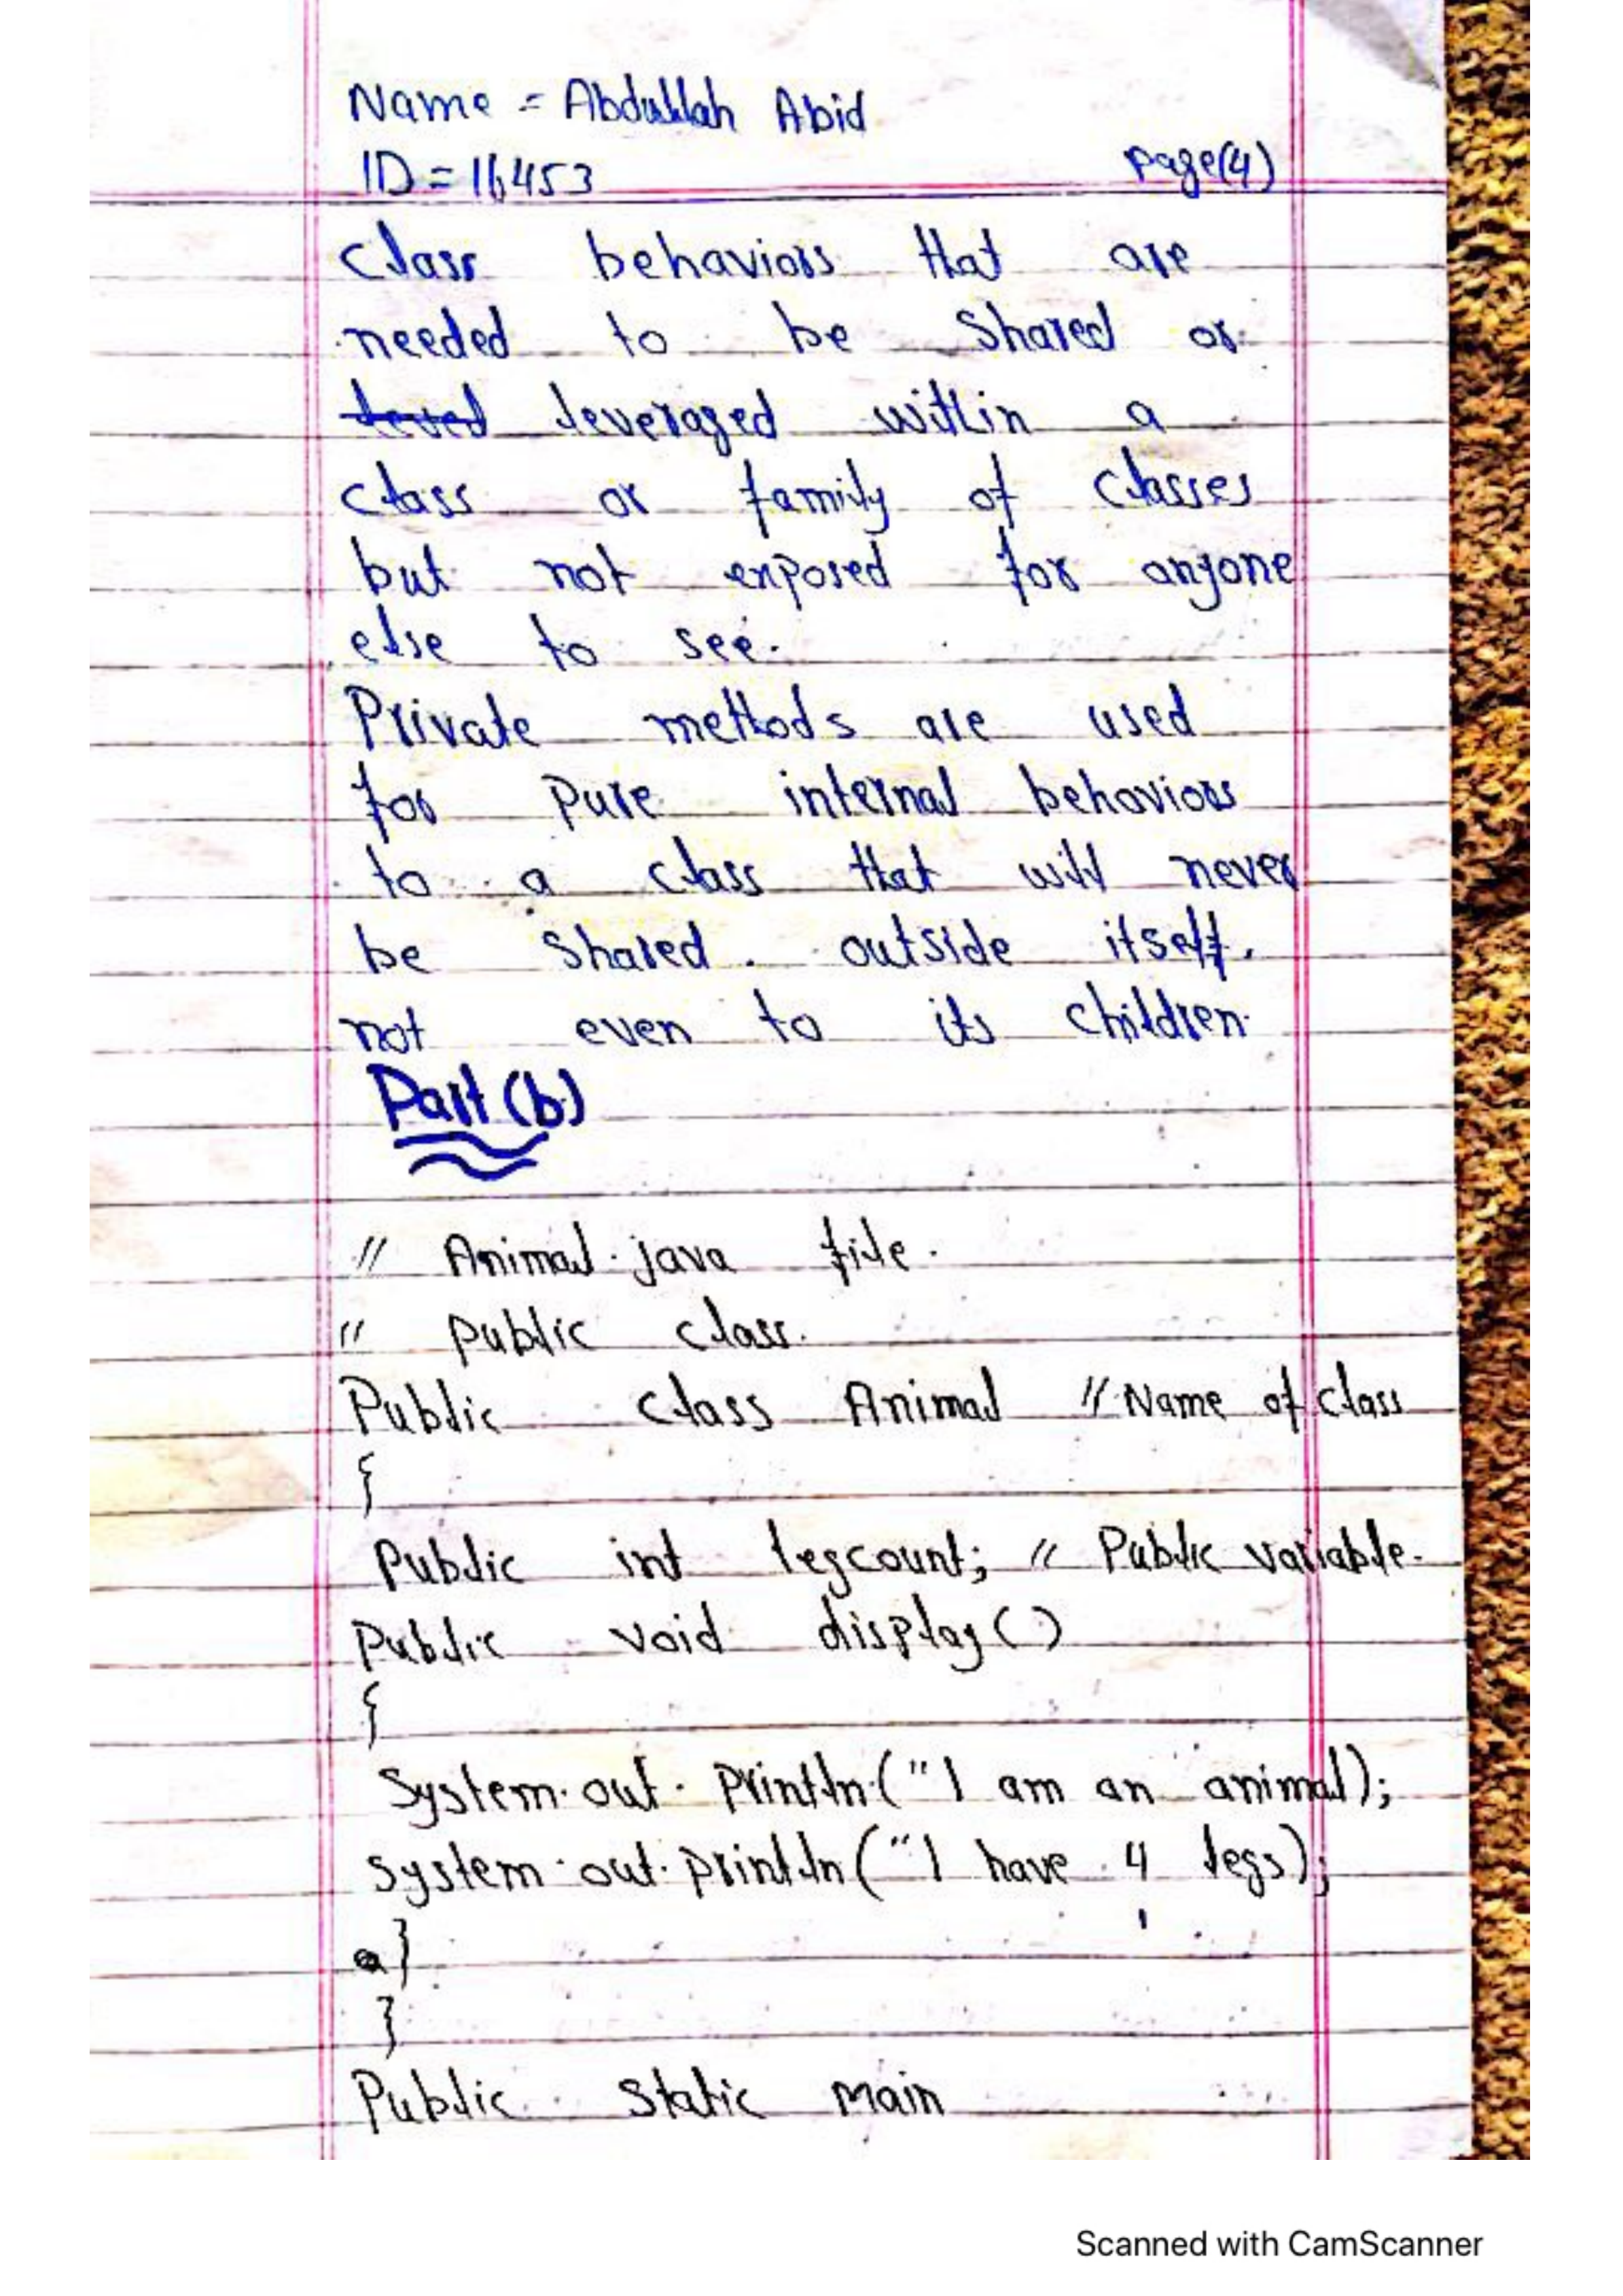 Name = Abdullah Abid
ID = 16453 Page(4)
Class behaviors that are
needed to be Shared or
leved leveraged within a
class or family of classes
but not exposed for anyone
else to see.
Private methods are used
for Pure internal behaviors
to a class that will never
be Shared. outside itself,
not even to its children.
Part (b)
// Animal.java file.
// public class.
Public class Animal // Name of class
{
Public int legcount; // Public variable.
Public void display()
{
System.out.println("I am an animal);
System.out.println("I have 4 legs);
}
}
Public Static Main
Scanned with CamScanner